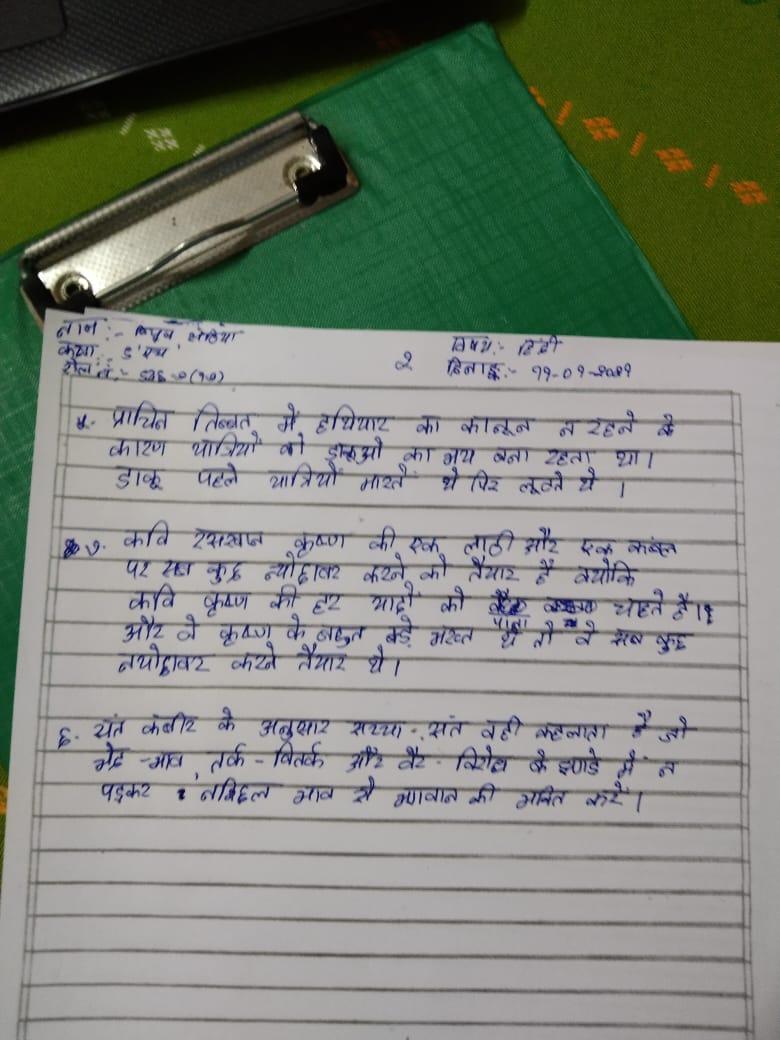 नाम:-
कक्षा:
रोल नं:-
विषय:- हिंदी
दिनाङ्क:- ११-०९-२०२१
२
५. प्राचिन तिब्बत में हथियार का कानून न रहने के
कारण यात्रियों को डाकूओ का भय बना रहता था।
डाकू पहले यात्रियों मारते थे फिर लूटते थे ।
७. कवि रसखान कृष्ण की एक लाठी और एक कंबल
पर सब कुछ न्योछावर करने को तैयार है क्योकि
कवि कृष्ण की हर यादों को पाना चाहते है।
और वे कृष्ण के बहुत बड़े भक्त थे तो वे सब कुछ
नयोछावर करने तैयार थे।
६. संत कंबीर के अनुसार सच्चा-संत वही कहलाता है जो
भेद-भाव, तर्क-वितर्क और वैर-विरोध के झगडे में न
पड़कर भाव से भगवान की भक्ति करें।